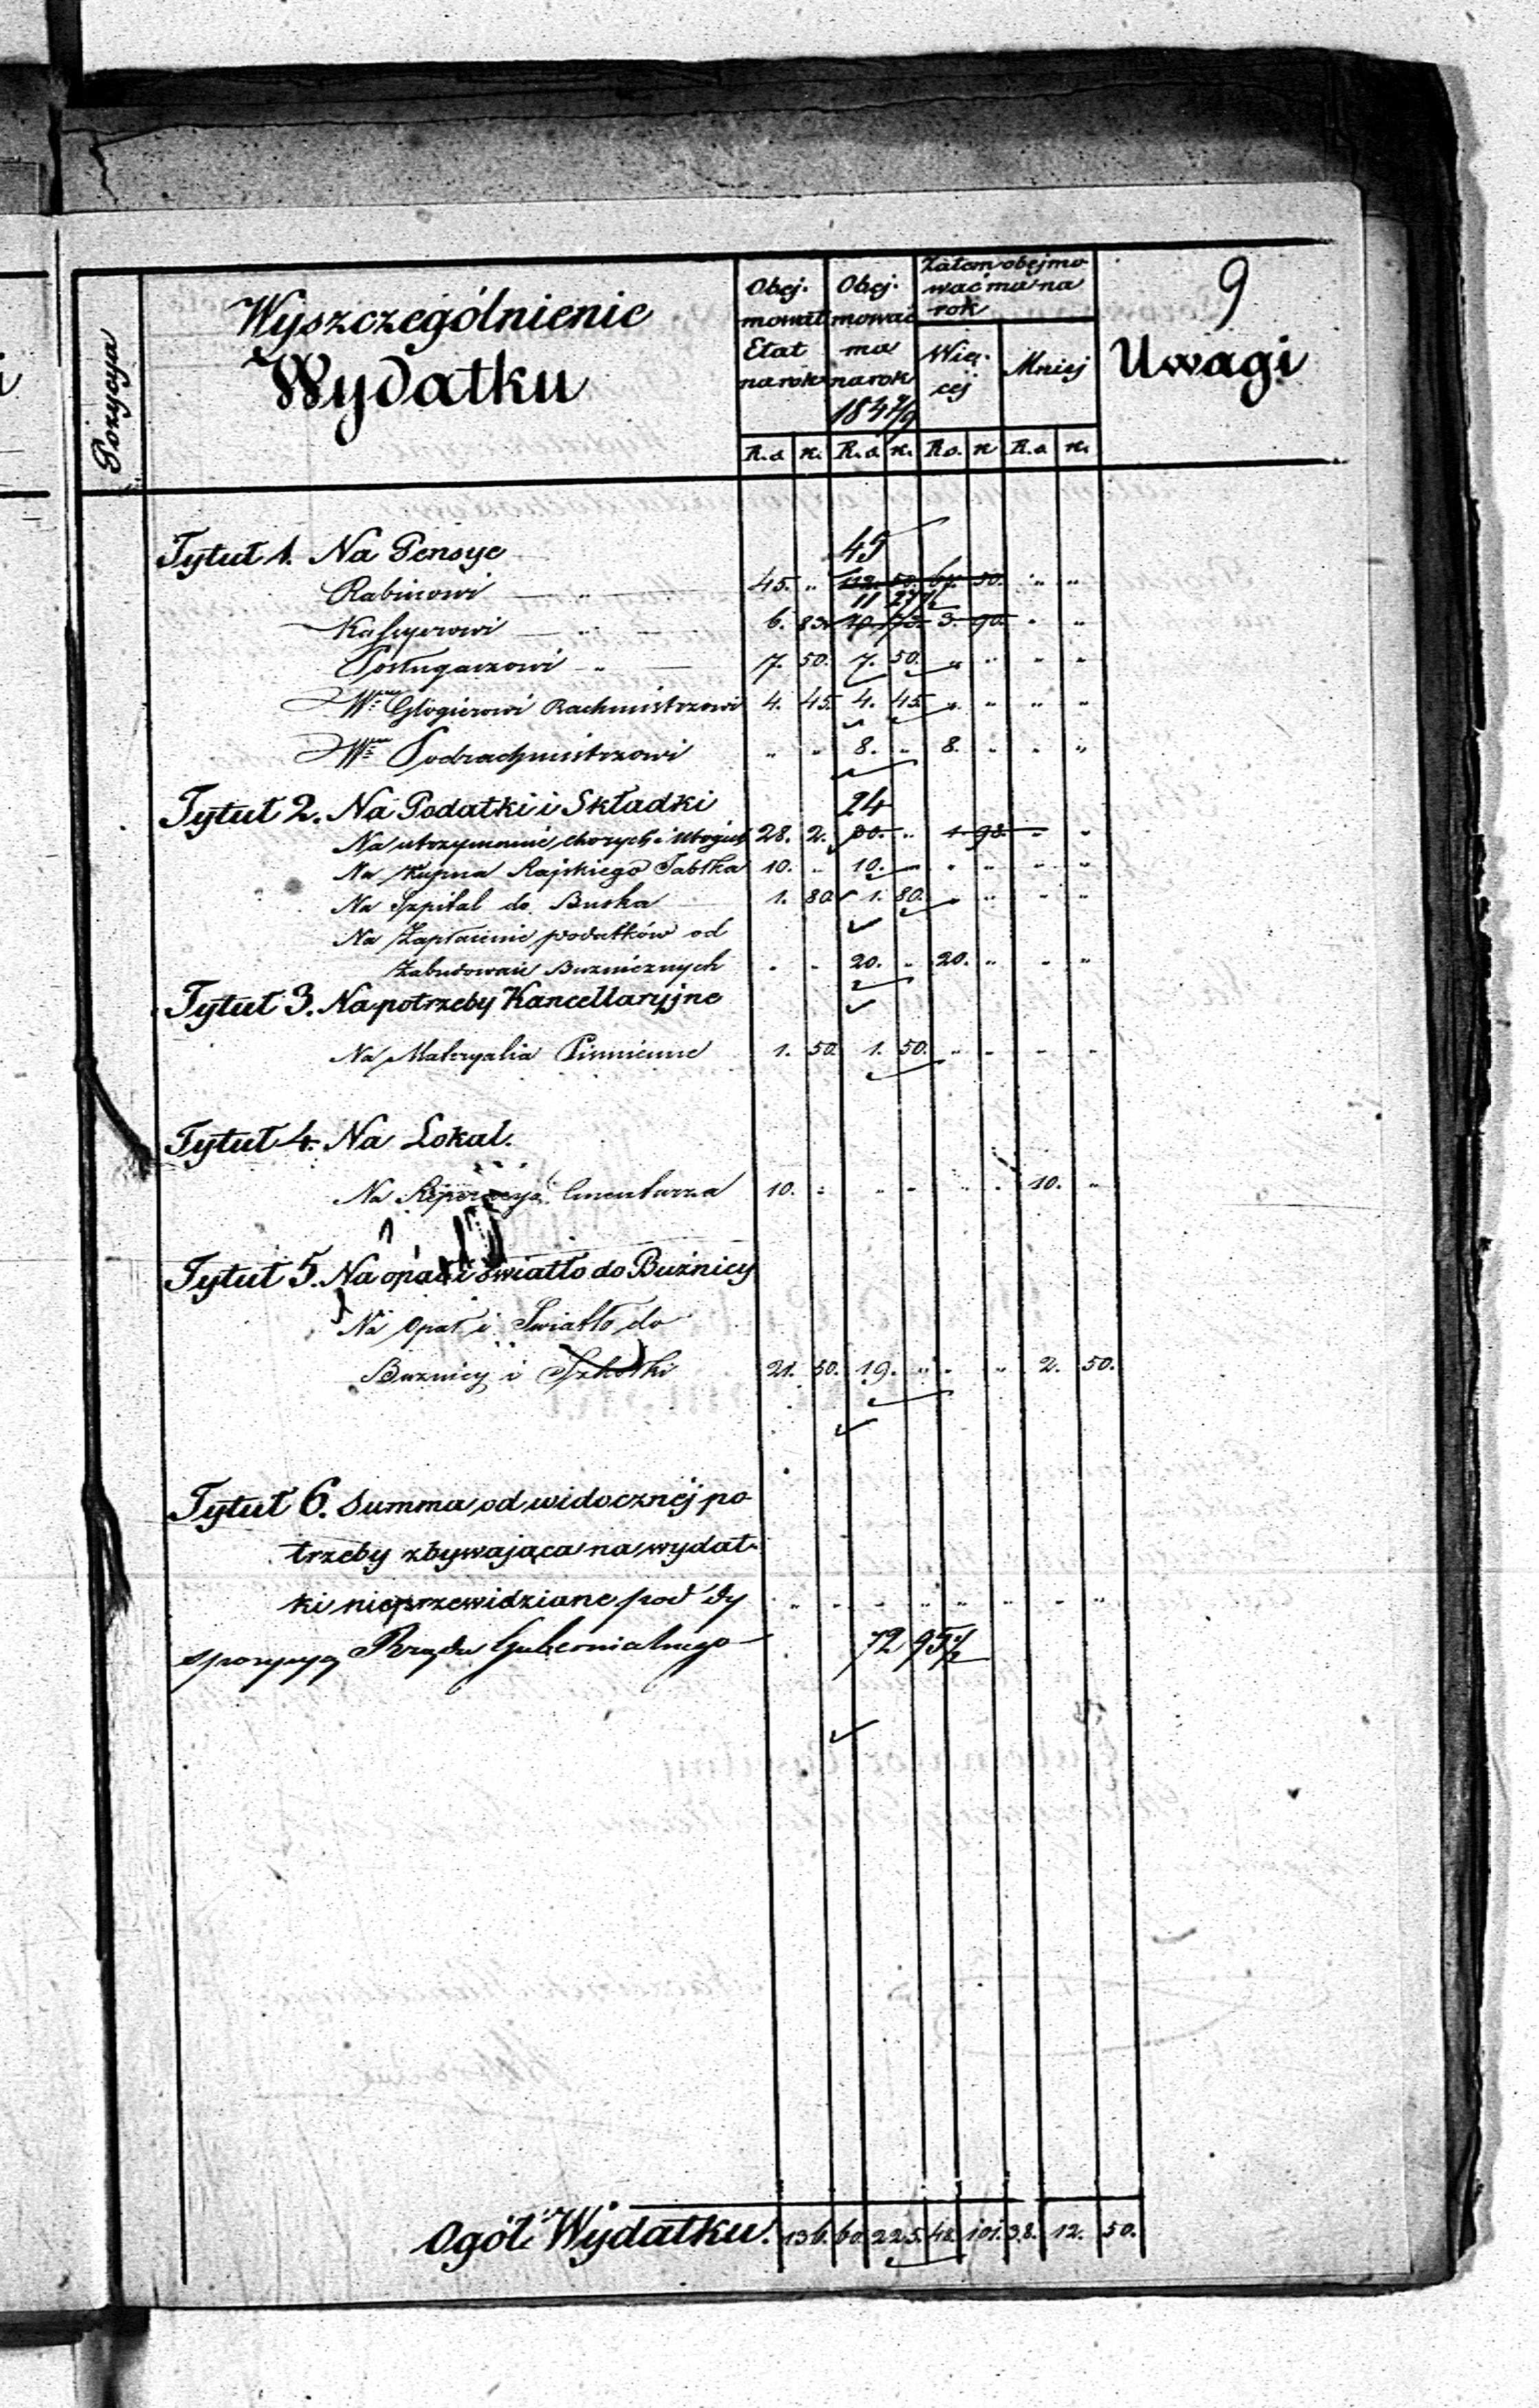 9
Pozycya
Wyszczególnienie
Wydatku
Obej-
mował
Etat
na rok
Obej-
mować
ma
na rok
1847/9
Zatem obejmo
wać ma na
rok
Wię-
cej
Mniej
Uwagi
R.s. k. R.s. k. R.s. k R.s. k.
Tytuł 1. Na Pensye
45
Rabinowi — „ — 45. „ 112. 50. 67. 50. „ „
11 27½
Kassyerowi — „ — 6. 83. 10. 73. 3. 90. „ „
Posługaczowi „ — 7. 50. 7. 50. „ „ „ „
Wmu Glogierowi Rachmistrzowi 4. 45. 4. 45. „ „ „ „
Wmu Podrachmistrzowi „ „ 8. „ 8. „ „ „
Tytuł 2. Na Podatki i Składki
24
Na utrzymanie chorych i Ubogich 28. 2. 30. „ 1 98. „ „
Na Kupna Rajskiego Jabłka 10. „ 10. „ „ „ „ „
Na Szpital do Buska 1. 80. 1. 80. „ „ „ „
Na Zapłacenie podatków od
Zabudowań Buzniczych „ „ 20. „ 20. „ „ „
Tytuł 3. Na potrzeby Kancellaryjne
Na Materyalia Piśmienne 1. 50. 1. 50. „ „ „ „
Tytuł 4. Na Lokal.
Na Reperacyą Cmentarza 10. „ „ „ „ „ 10. „
Tytuł 5. Na opał i światło do Buźnicy
Na Opał i Swiatło do
Buznicy i Szkołki 21. 50. 19. „ „ „ 2. 50.
Tytuł 6. Summa od widocznéj po
trzeby zbywająca na wydat-
ki nieprzewidziane pod dy „ „ „ „ „ „ „ „
spozycyą Rządu Gubernialnego 72 95½
Ogół Wydatku. 136. 60. 225. 48. 101. 38. 12. 50.